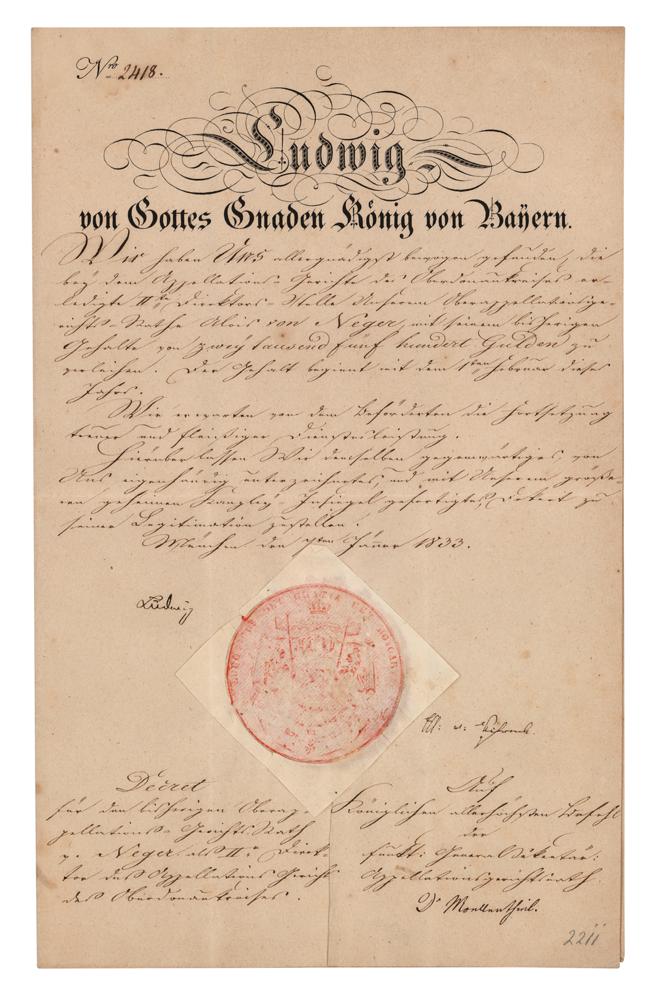 Nro 2418.
Ludwig
von Gottes Gnaden König von Bayern.
Wir haben Uns allergnädigst bewogen gefunden, die
bey dem Appellations-Gerichte des Oberdonaukreises er-
ledigte IIte Direktors-Stelle Unserem Oberappellationsge-
richts-Rathe Alois von Neger, mit seinem bisherigen
Gehalte von zwey tausend fünf hundert Gulden zu
verleihen. Der Gehalt beginnt mit dem 1ten Februar dieses
Jahrs.
Wir erwarten von dem Beförderten die Fortsetzung
treuer und fleißiger Dienstesleistung.
Hierüber lassen Wir demselben gegenwärtiges, von
Uns eigenhändig unterzeichnetes, und mit Unserem größe-
ren geheimen Kanzley-Insiegel gefertigtes Dekret zu
seiner Legitimation zustellen.
München den 7ten Jäner 1833.
Ludwig
Decret
für den bisherigen Oberap-
pellations-Gerichts Rath
v. Neger als IIr Direk-
tor des Appellations Gerichts
des Oberdonaukreises.
Auf
Königlichen allerhöchsten Befehl
der
funkt: General Sekretär:
Appellationsgerichtsrath.
2211